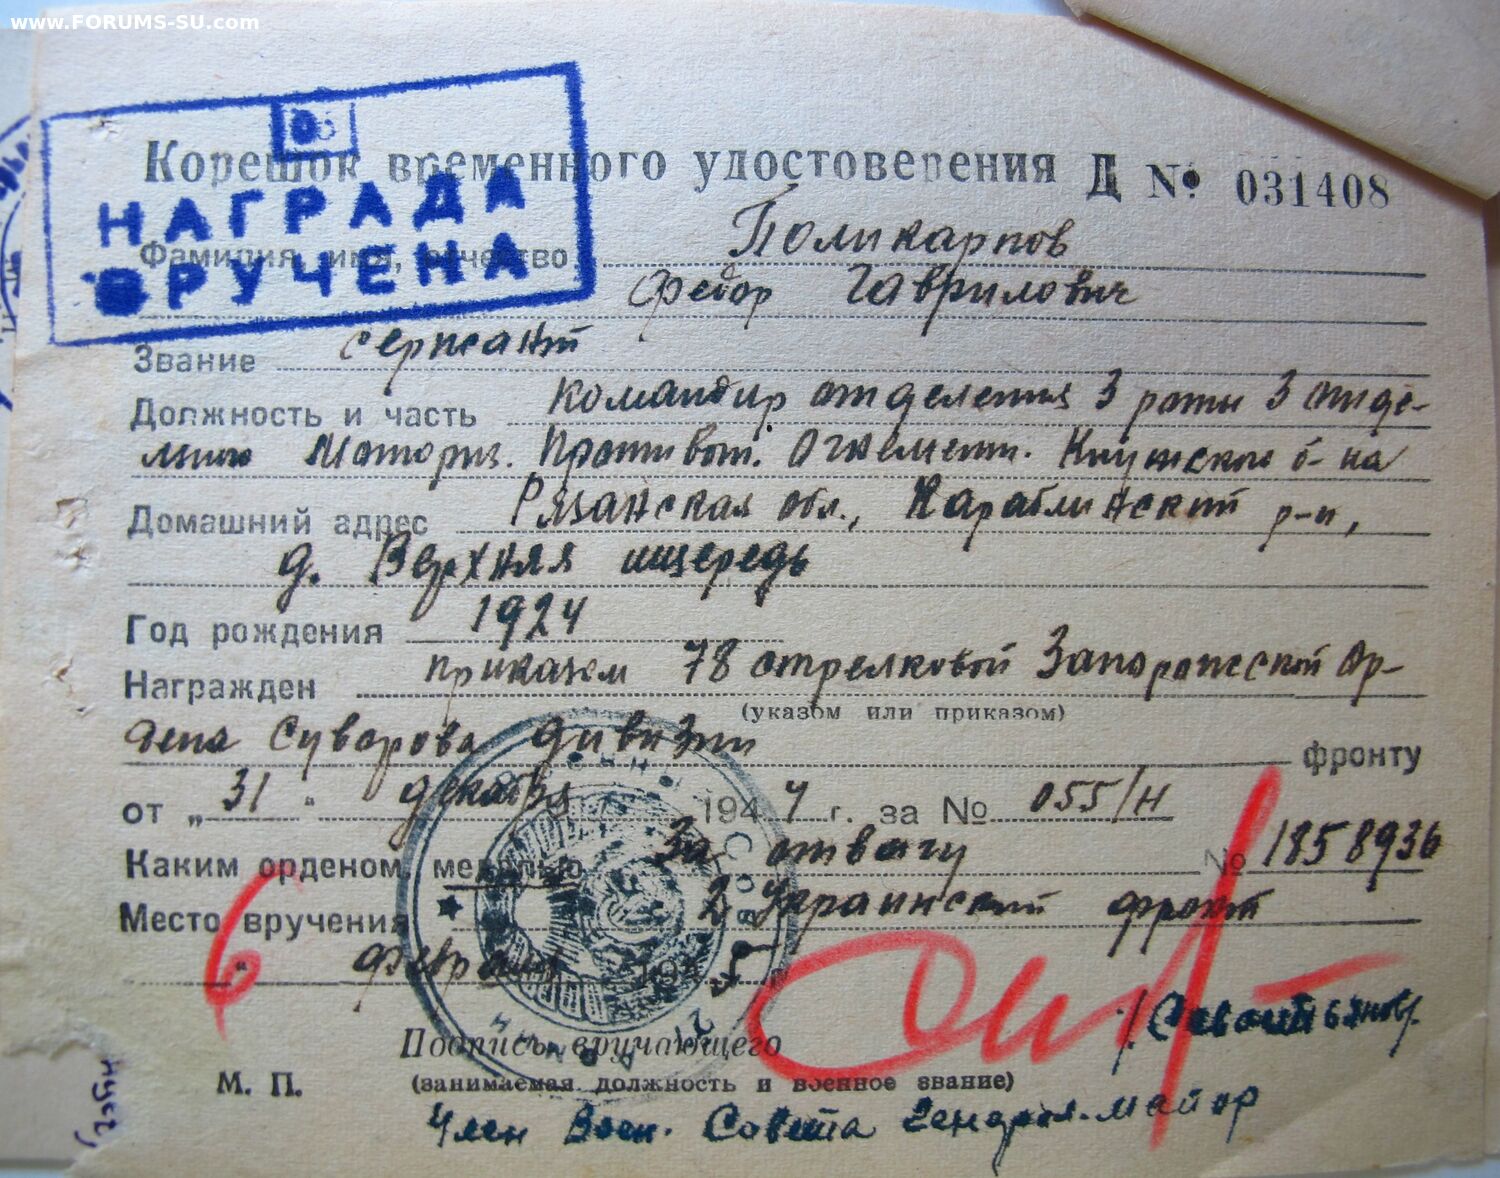 www.FORUMS-SU.com
НАГРАДА
ВРУЧЕНА
Корешок временного удостоверения Д № 031408
Фамилия, имя, отчество Поликарпов
Федор Гаврилович
Звание сержант
Должность и часть командир отделения 3 роты 3 отде-
льного Моториз. Противот. Огнемётн. б-на
Домашний адрес Рязанская обл., Кораблинский р-н,
д. Верхняя ищередь
Год рождения 1924
Награжден приказом 78 стрелковой Запорожской Ор-
(указом или приказом)
дена Суворова дивизии фронту
от „31" декабря 1944 г. за № 055/н
Каким орденом, медалью За отвагу № 1858936
Место вручения 2 Украинский фронт
6 " февраля 1945 г.
Подпись вручающего
(занимаемая должность и военное звание)
М. П.
Член Воен. Совета Генерал-майор